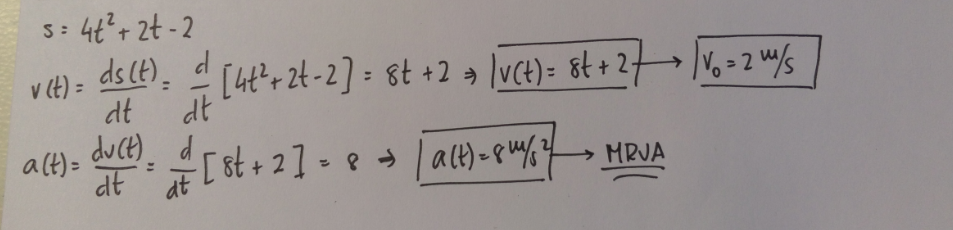 s = 4t² + 2t - 2
v(t) = ds(t)/dt = d/dt [4t² + 2t - 2] = 8t + 2 ⇒ v(t) = 8t + 2 → v₀ = 2 m/s
a(t) = dv(t)/dt = d/dt [8t + 2] = 8 ⇒ a(t) = 8 m/s² → MRUA